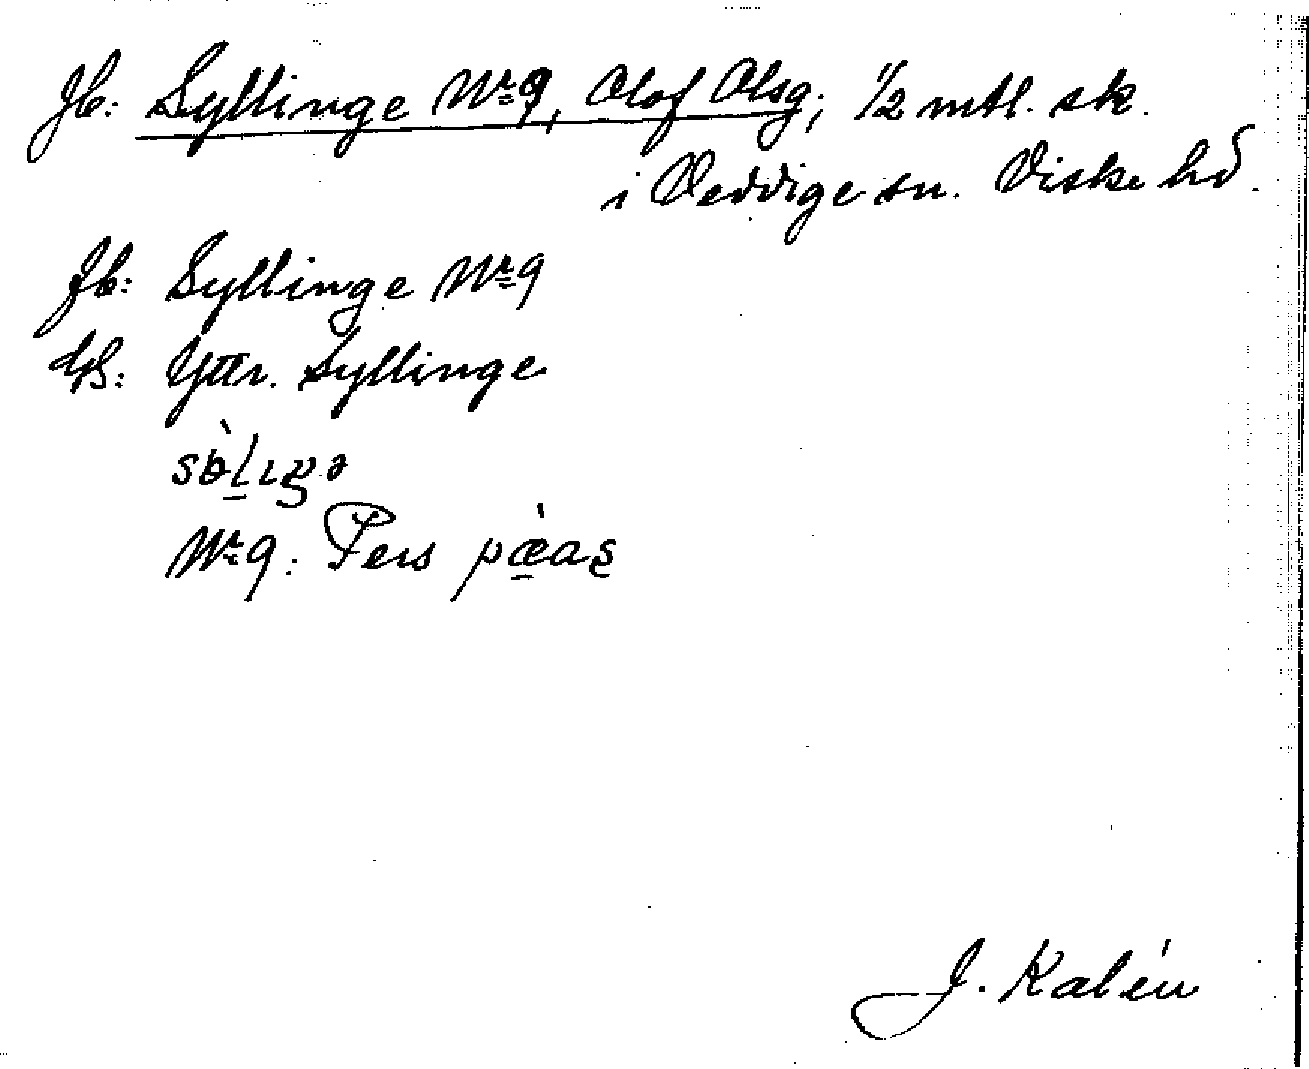 Jb: Syllinge Nr 9, Olof Olsg; 1/2 mtl. sk.
i Veddige sn. Viske hd.
Jb: Syllinge Nr 9
GS: Yttr. Syllinge
Nr 9: Pers pæ̀as̢
J. Kalén